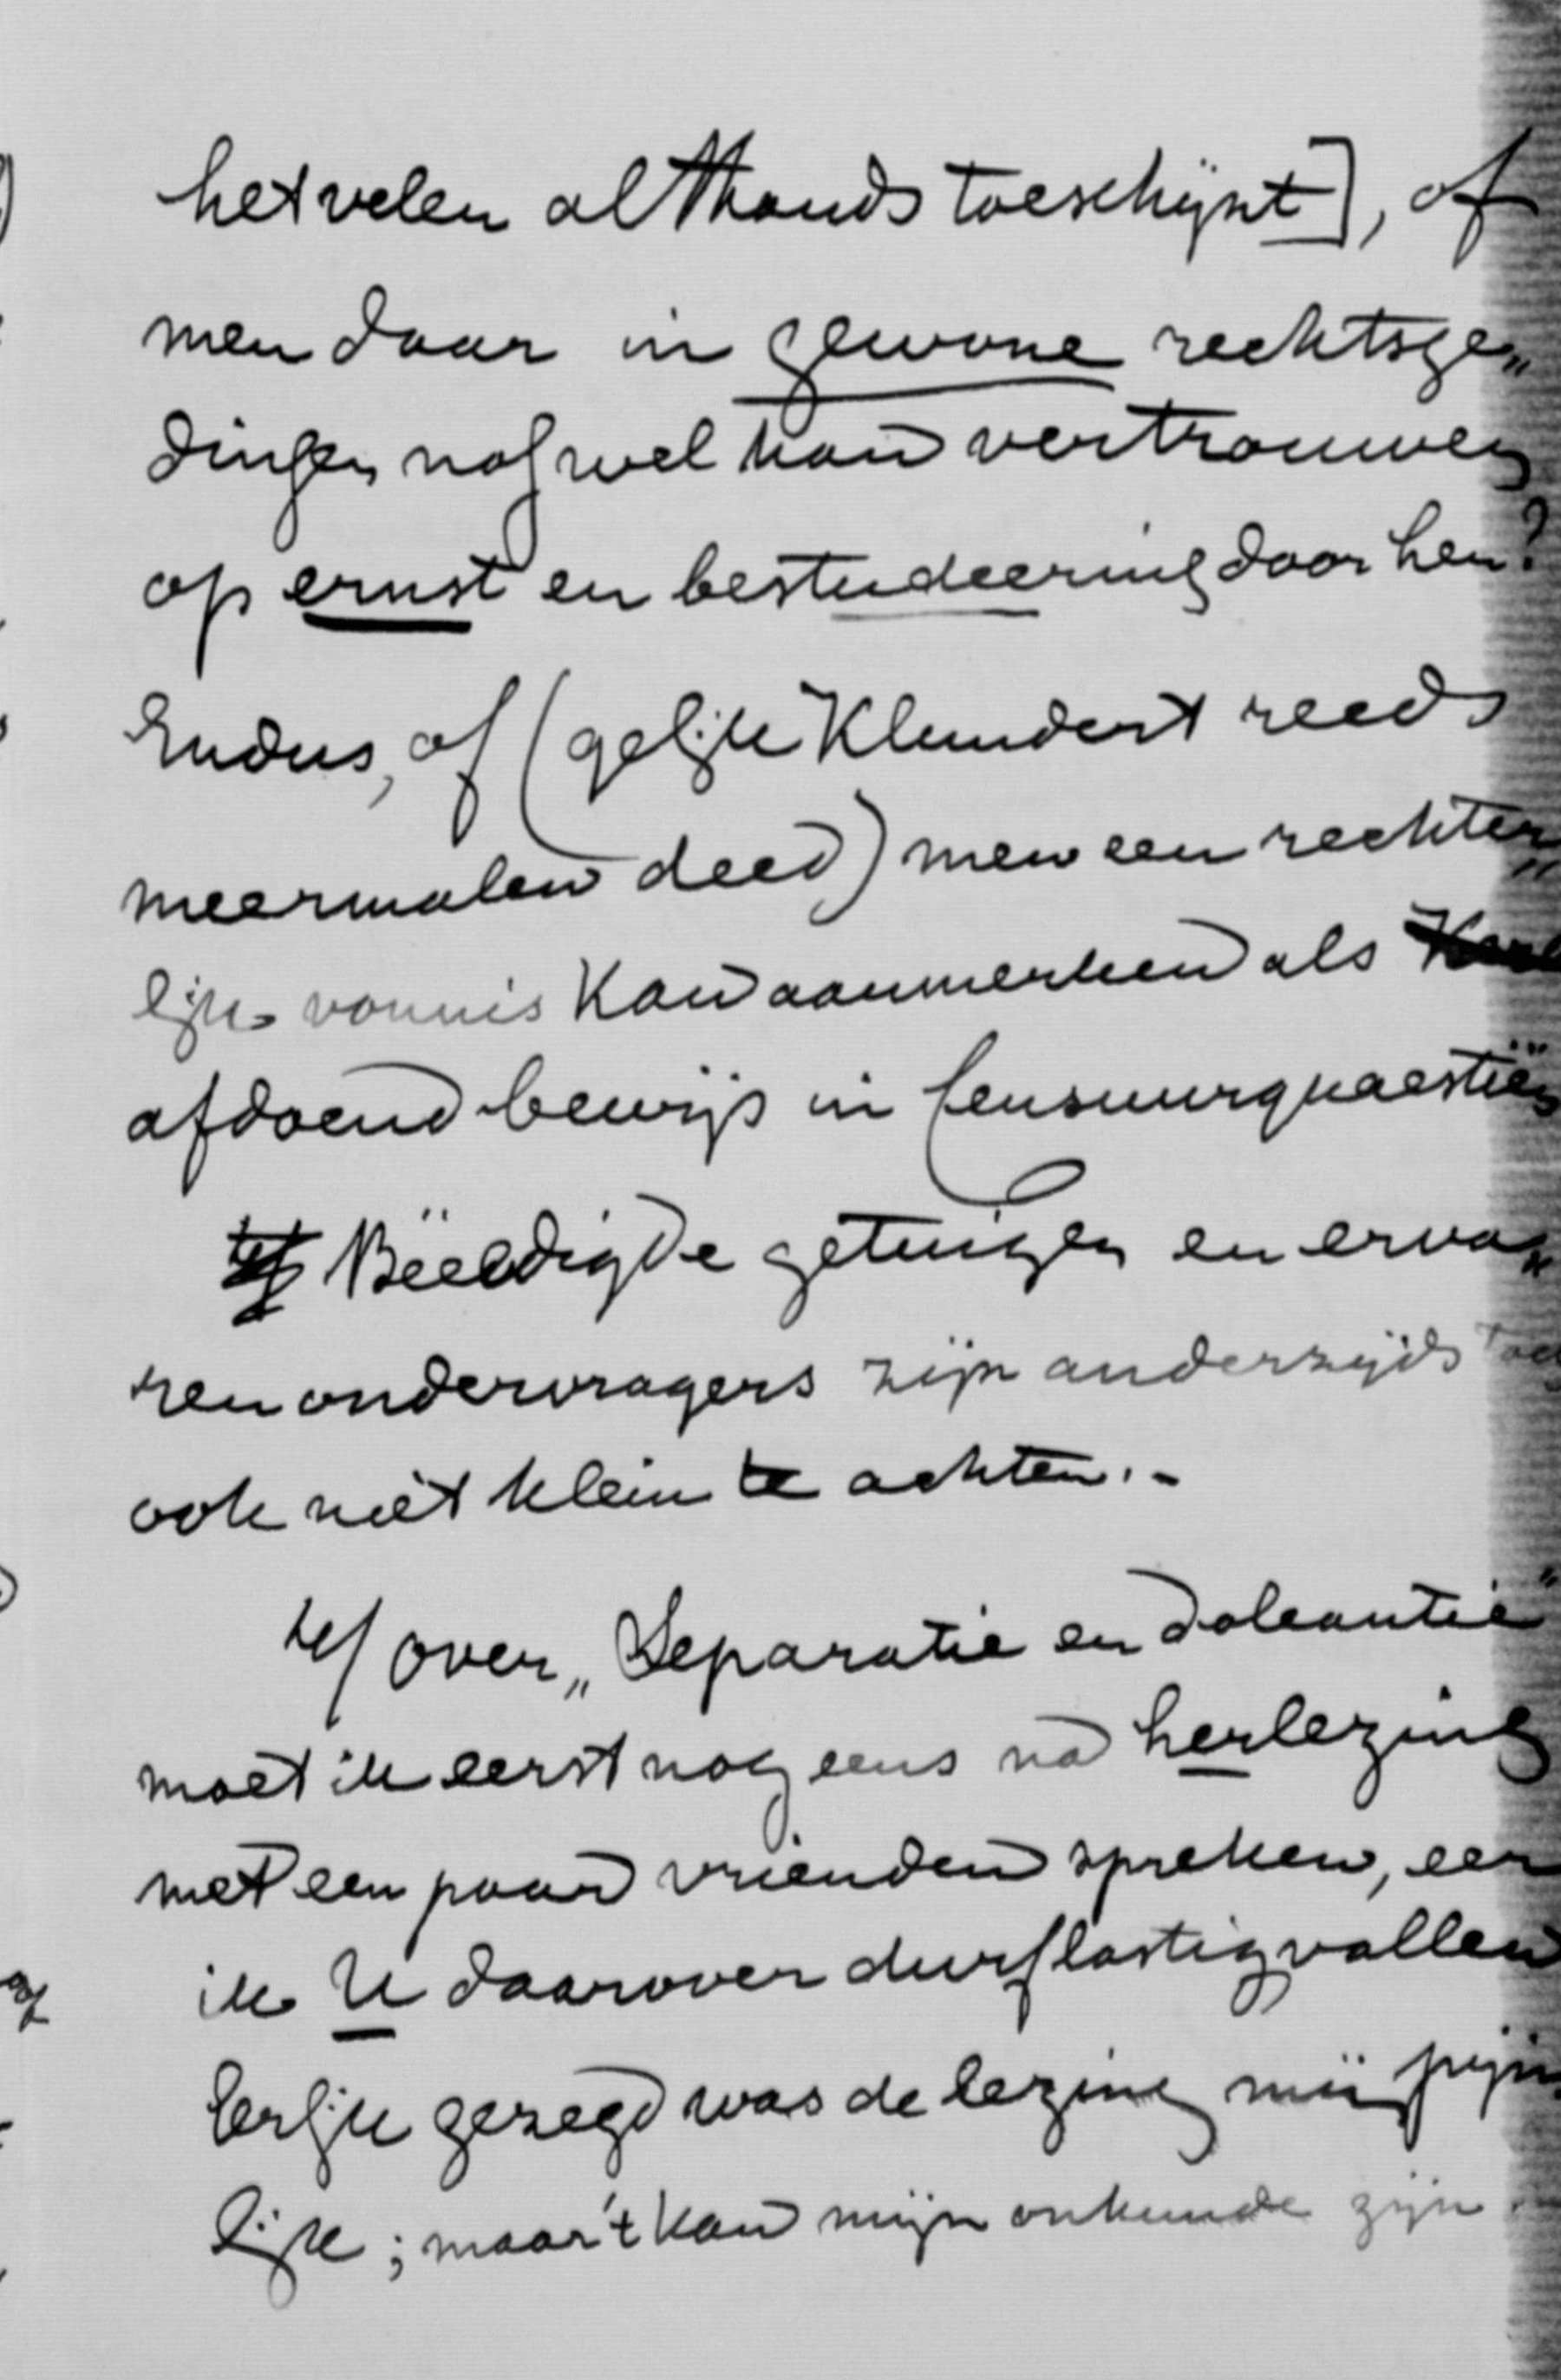 het velen althands toeschijnt], of
men daar in gewone rechtsge„
dingen nog wel kan vertrouwen
op ernst en bestudeering door hen?
Endus, of (gelijk Klundert reeds
meermalen deed) men een rechter„
lijk vonnis kan aanmerken als
afdoend bewijs in Censuurquaestiën
Beëedigde getuigen en erva„
ren ondervragers zijn anderzijds toch
ook niet klein te achten.-
over „Separatie en doleantie"
moet ik eerst nog eens na herlezing
met een paar vrienden spreken, eer
ik U daarover durf lastig vallen
Eerlijk gezegd was de lezing mij pijn
lijk; maar 't kan mijn onkunde zijn